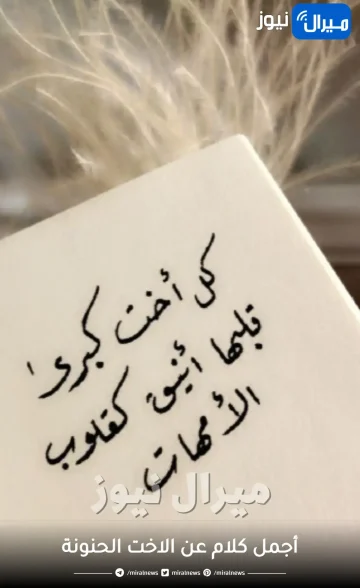 ميرال نيوز
كل أخت كبرى
قلبها أنيق كقلوب
الأمهات
ميرال نيوز
أجمل كلام عن الاخت الحنونة
/miralnews /miralnews /miralnews